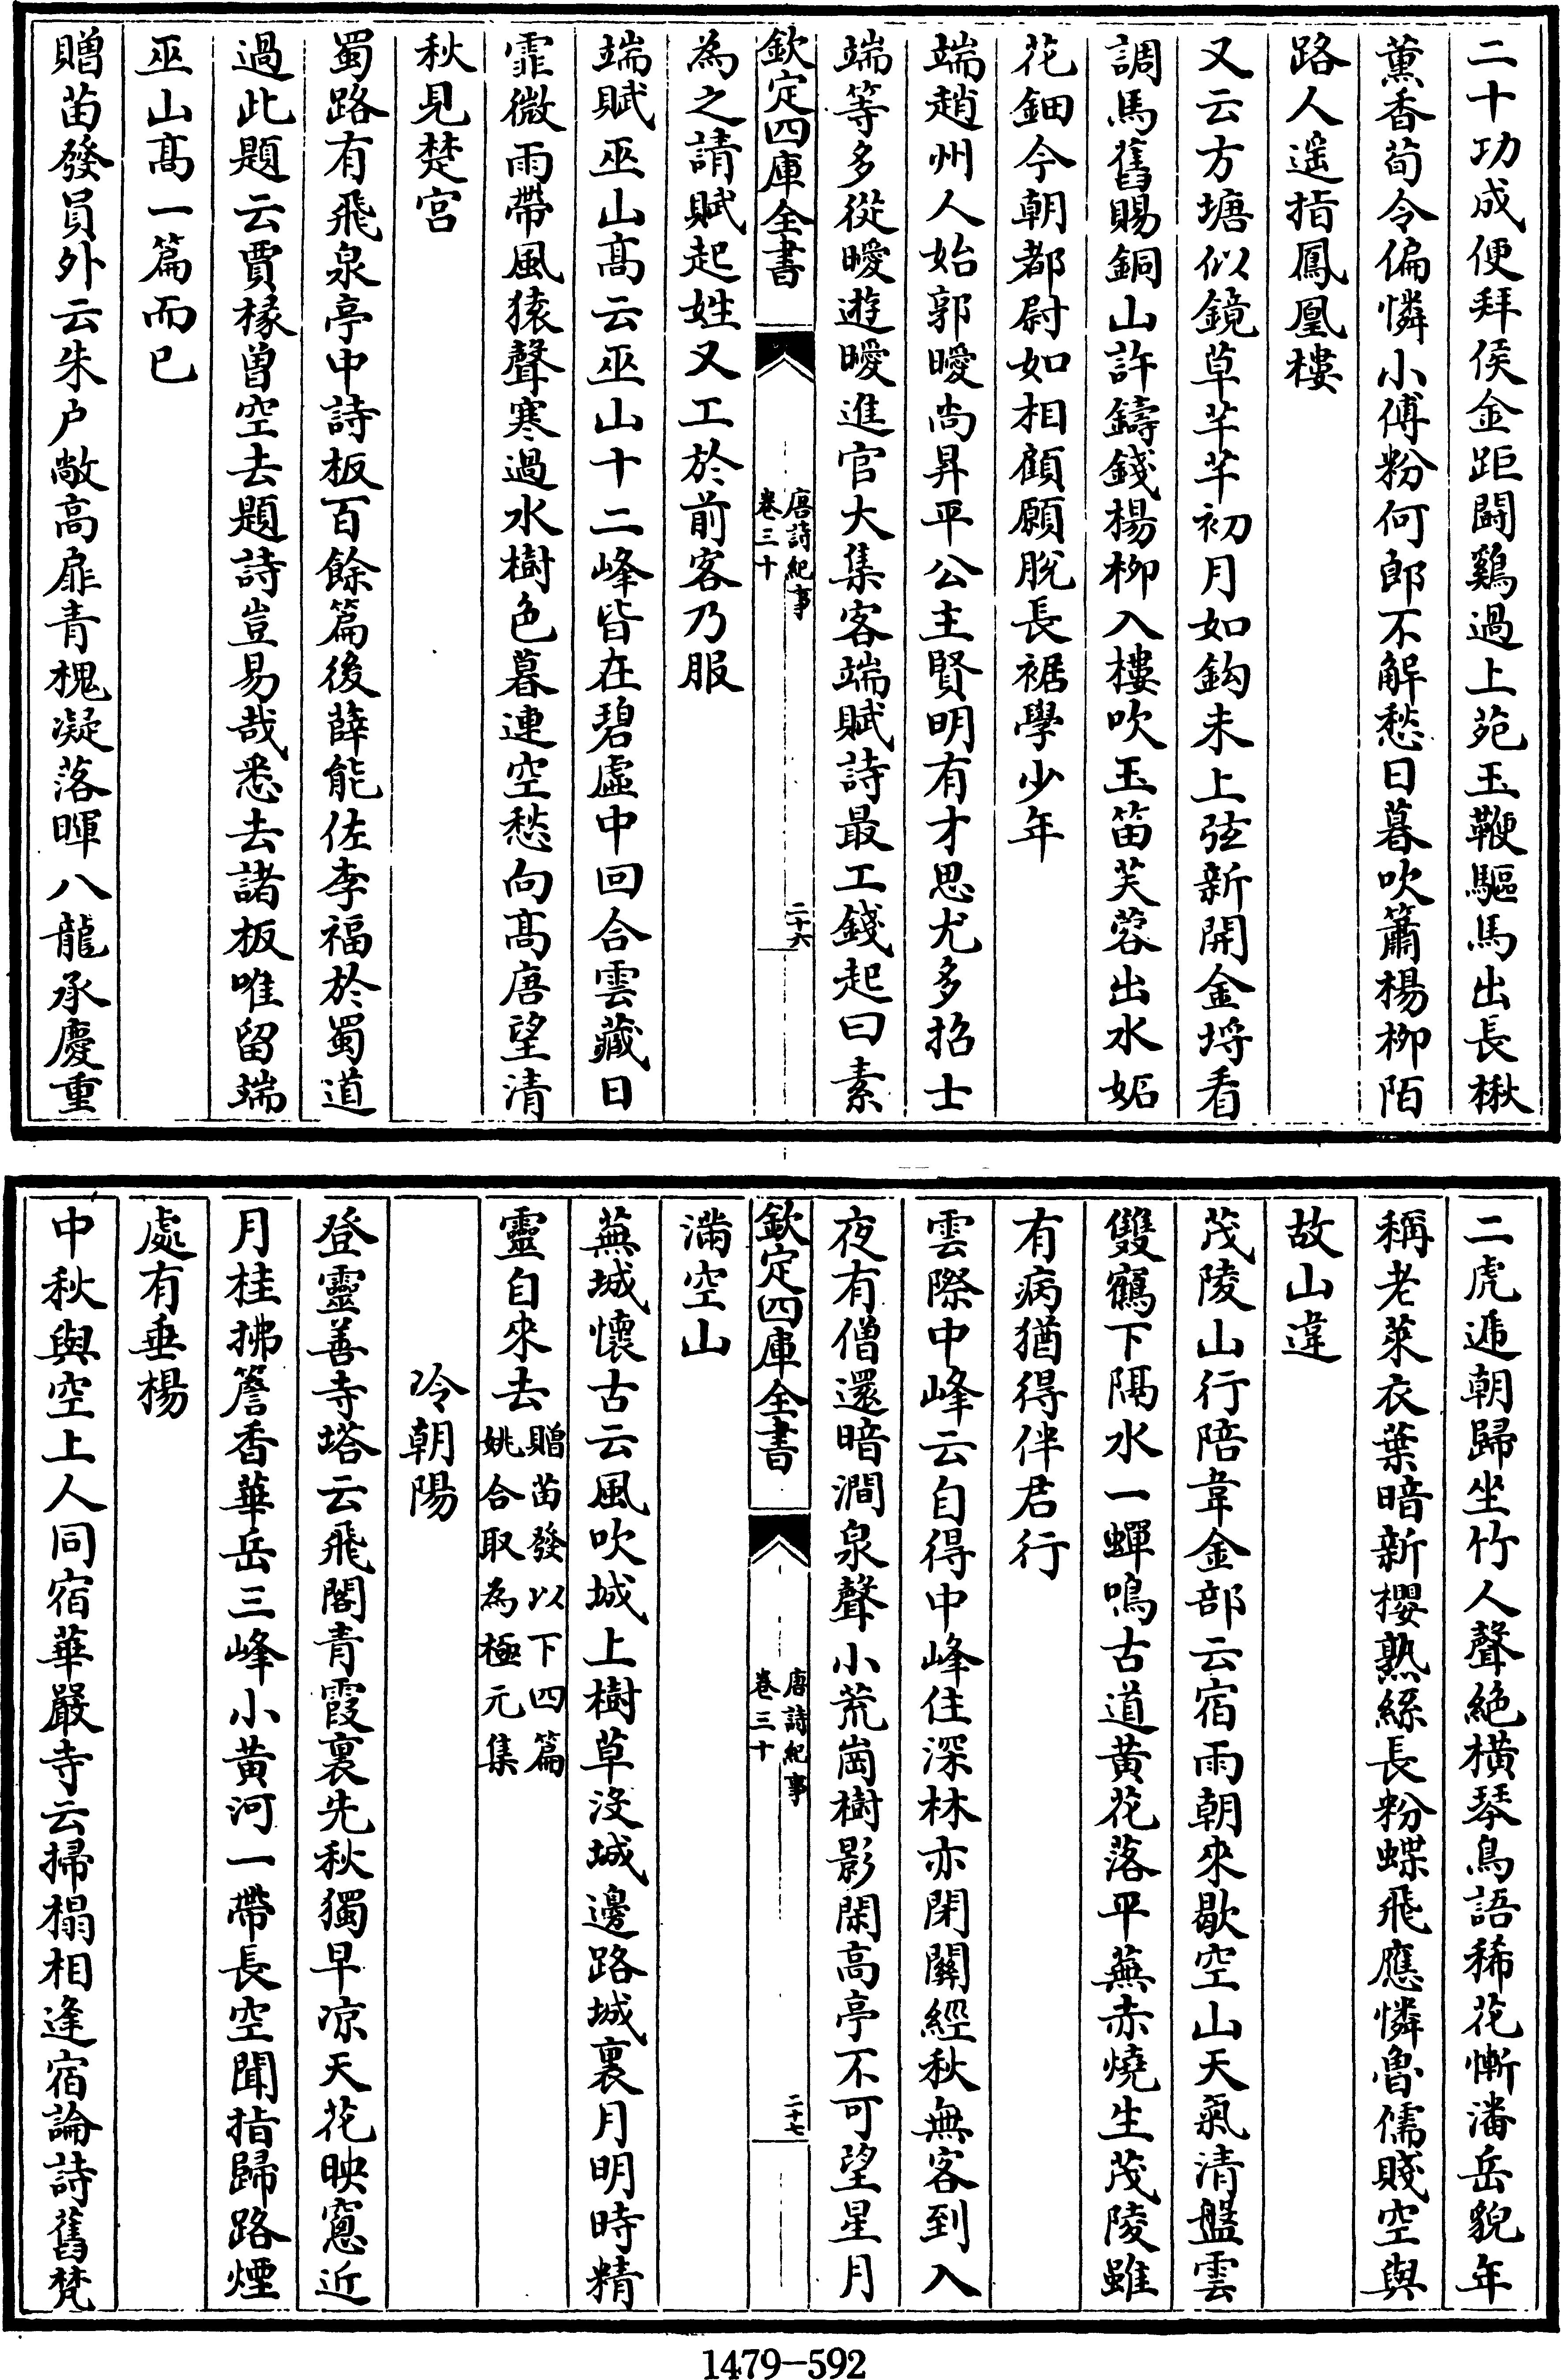 二十功成便拜侯金距鬬鷄過上苑玉鞭驅馬出長楸
薰香荀令偏憐小傅粉何郎不解愁日暮吹簫楊柳陌
路人遥指鳳凰樓
又云方塘似鏡草芊芊初月如鈎未上弦新開金埒看
調馬舊賜銅山許鑄錢楊柳入樓吹玉笛芙蓉出水妬
花鈿今朝都尉如相顧願脫長裾學少年
端趙州人始郭曖尚昇平公主賢明有才思尤多招士
端等多從曖遊曖進官大集客端賦詩最工錢起曰素
欽定四庫全書
唐詩紀事
卷三十
二十六
為之請賦起姓又工於前客乃服
端賦巫山高云巫山十二峰皆在碧虛中回合雲藏日
霏微雨帶風猿聲寒過水樹色暮連空愁向高唐望清
秋見楚宮
蜀路有飛泉亭中詩板百餘篇後薛能佐李福於蜀道
過此題云賈掾曽空去題詩豈易哉悉去諸板唯留端
巫山高一篇而已
贈苗發員外云朱户敞高扉青槐凝落暉八龍承慶重
二虎遞朝歸坐竹人聲絕橫琴鳥語稀花慚潘岳貌年
稱老萊衣葉暗新櫻熟絲長粉蝶飛應憐魯儒賤空與
故山違
茂陵山行陪韋金部云宿雨朝來歇空山天氣清盤雲
雙鶴下隔水一蟬鳴古道黃花落平蕪赤燒生茂陵雖
有病猶得伴君行
雲際中峰云自得中峰住深林亦閉關經秋無客到入
夜有僧還暗澗泉聲小荒崗樹影閑高亭不可望星月
欽定四庫全書
唐詩紀事
卷三十
二十七
滿空山
蕪城懷古云風吹城上樹草沒城邊路城裏月明時精
靈自來去
贈苗發以下四篇
姚合取為極元集
冷朝陽
登靈善寺塔云飛閣青霞裏先秋獨早凉天花映窻近
月桂拂簷香華岳三峰小黃河一帶長空聞指歸路煙
處有垂楊
中秋與空上人同宿華嚴寺云掃榻相逢宿論詩舊梵
1479—592